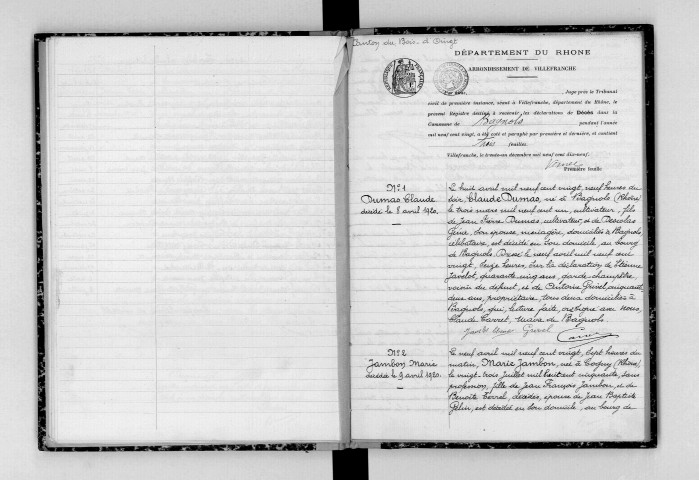 Canton du Bois d'Oingt
DÉPARTEMENT DU RHONE
ARRONDISSEMENT DE VILLEFRANCHE
RÉPUBLIQUE FRANÇAISE
Juge près le Tribunal
civil de première instance, séant à Villefranche, département du Rhône, le
présent Registre destiné à recevoir les déclarations de Décès dans la
Commune de Bagnols pendant l'année
mil neuf cent vingt, a été coté et paraphé par première et dernière, et contient
trois feuilles.
Villefranche, le trente-un décembre mil neuf cent dix-neuf.
Première feuille
N° 1
Dumas Claude
décédé le 8 avril 1920.
Le huit avril mil neuf cent vingt, neuf heures du
soir, Claude Dumas, né à Bagnols (Rhône)
le trois mars mil neuf cent un, cultivateur, fils
de Jean Pierre Dumas, cultivateur, et de
son épouse, ménagère, domiciliés à Bagnols
célibataire, est décédé en son domicile, au bourg
de Bagnols. Dressé le neuf avril mil neuf cent
vingt, heures, sur la déclaration de Etienne
Javelot, quarante cinq ans, garde-champêtre
voisin du défunt, et de Antoine Grivel, cinquante
deux ans, propriétaire, tous deux domiciliés à
Bagnols, qui, lecture faite, ont signé avec Nous,
Claude Carret, Maire de Bagnols.
Grivel
N° 2
Jambon Marie
décédée le 9 avril 1920.
Le neuf avril mil neuf cent vingt, sept heures du
matin, Marie Jambon, née à (Rhône)
le vingt trois Juillet mil huit cent cinquante, sans
profession, fille de Jean François Jambon, et de
Benoite, décédés, épouse de Jean Baptiste
est décédée en son domicile, au bourg de